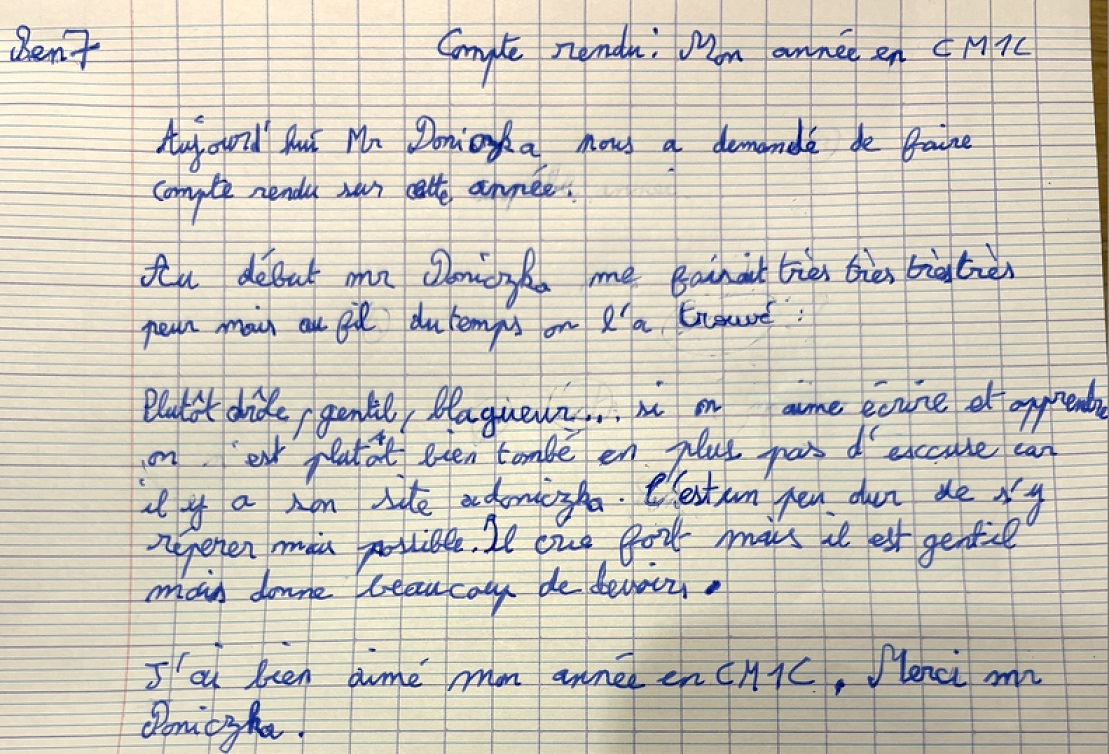 Ben7 Compte rendu: Mon année en CM1C
Aujourd'hui Mr Doniczka nous a demandé de faire
compte rendu sur cette année.
Au début mr Doniczka me faisait très très très très
peur mais au fil du temps on l'a trouvé :
Plutôt drôle, gentil, blagueur... si on aime écrire et apprendre
on est plutôt bien tombé en plus pas d'excuse car
il y a son site adoniczka. C'est un peu dur de s'y
réperer mais possible. Il crie fort mais il est gentil
mais donne beaucoup de devoirs.
J'ai bien aimé mon année en CM1C. Merci mr
Doniczka.